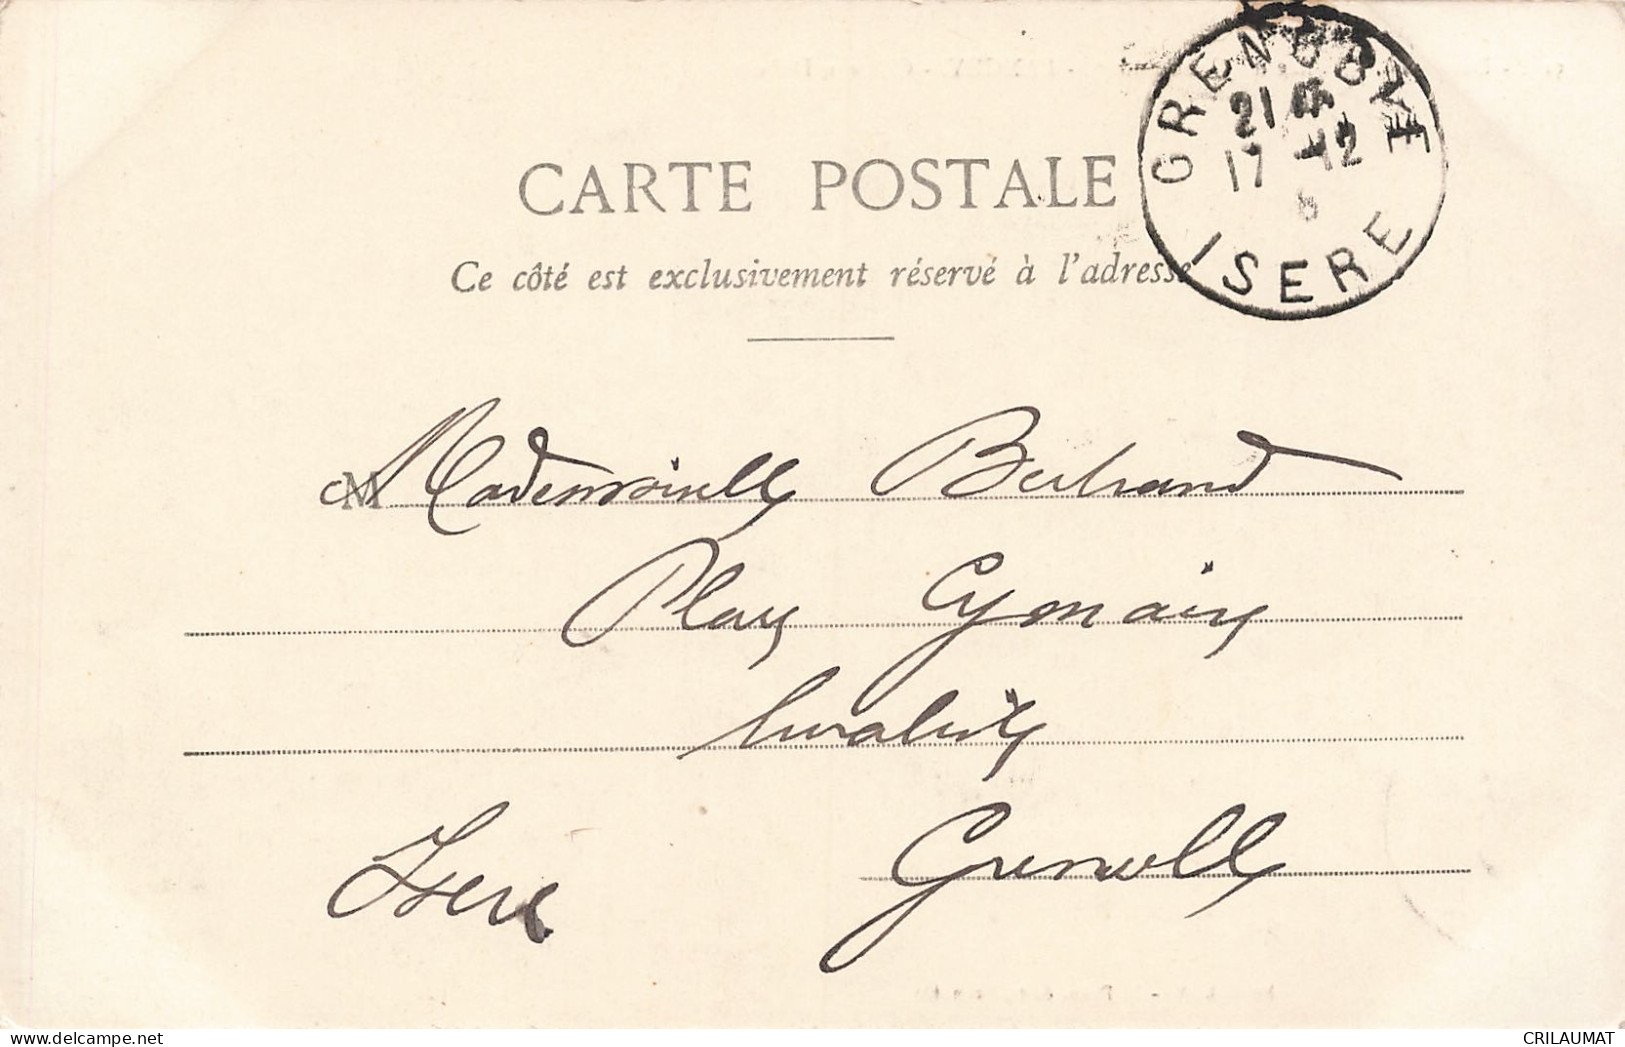 GRENOBLE
21
17 -12
ISERE
CARTE POSTALE
Ce côté est exclusivement réservé à l'adresse
M Mademoiselle Bertrand
Place
Grenoble
Isère
CRILAUMAT